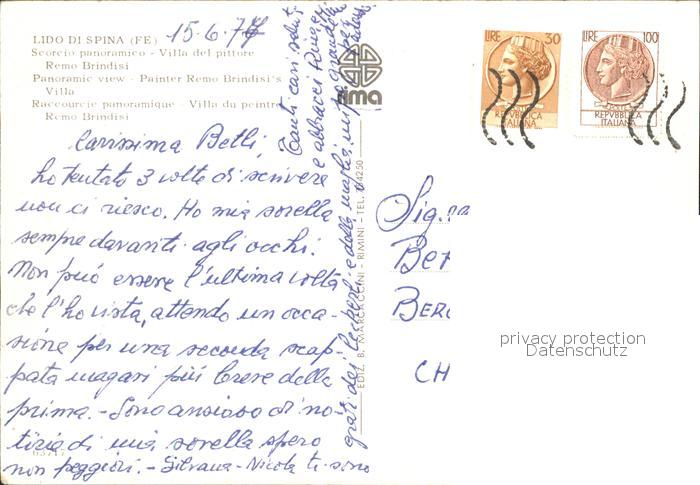 LIDO DI SPINA (FE)
Scorcio panoramico - Villa del pittore
Remo Brindisi
Panoramic view - Painter Remo Brindisi's
Villa
Raccourcie panoramique - Villa du peintre
Remo Brindisi
15.6.77
Carissima Betli,
ho tentato 3 volte di scrivere
non ci riesco. Ho mia sorella
sempre davanti agli occhi.
Non può essere l'ultima volta
che l'ho vista, attendo un occa-
sione per una seconda scap-
pata magari più breve della
prima. - Sono ansioso di no-
tizia di mia sorella spero
non peggiori. - Silvana - Nicola ti sono
grati dei e della maglia, un più grande
Tanti cari saluti
e abbracci
63717
rima
EDIZ. B. MARCACCINI - RIMINI - TEL. 24250
LIRE 30
REPVBBLICA
ITALIANA
LIRE 100
REPVBBLICA
ITALIANA
Sig.na
BET
BERG
CH
privacy protection
Datenschutz